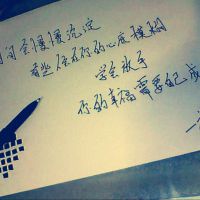 时间会慢慢沉淀
有些人在你的心底模糊
学会放手
你的幸福需要自己成